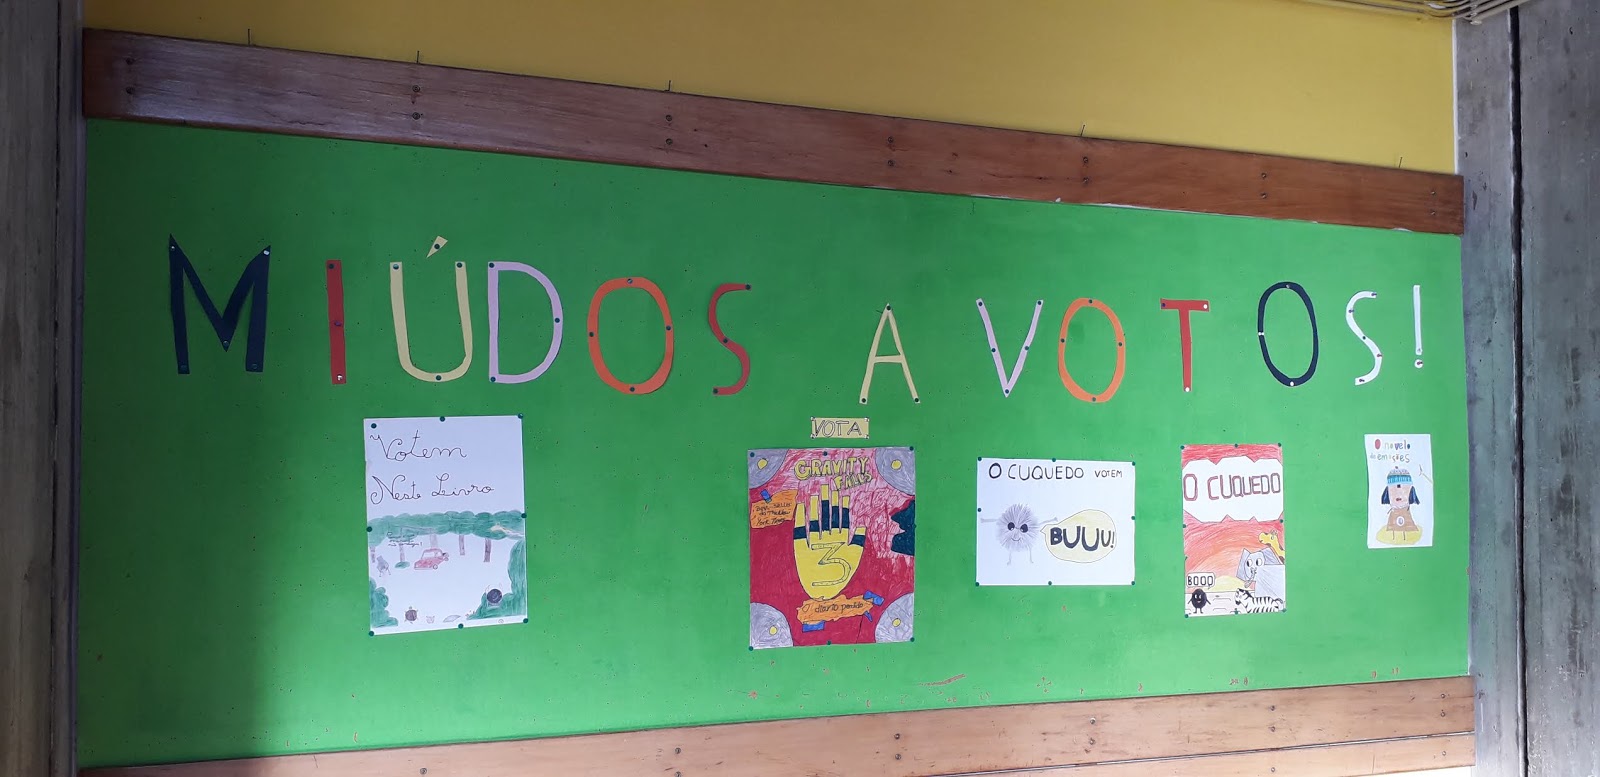 MIÚDOS A VOTOS!
Votem
Neste Livro
VOTA
GRAVITY
FALLS
3
O diário perdido
O CUQUEDO VOTEM
BUUU!
O CUQUEDO
BOOO
O novelo
de emoções